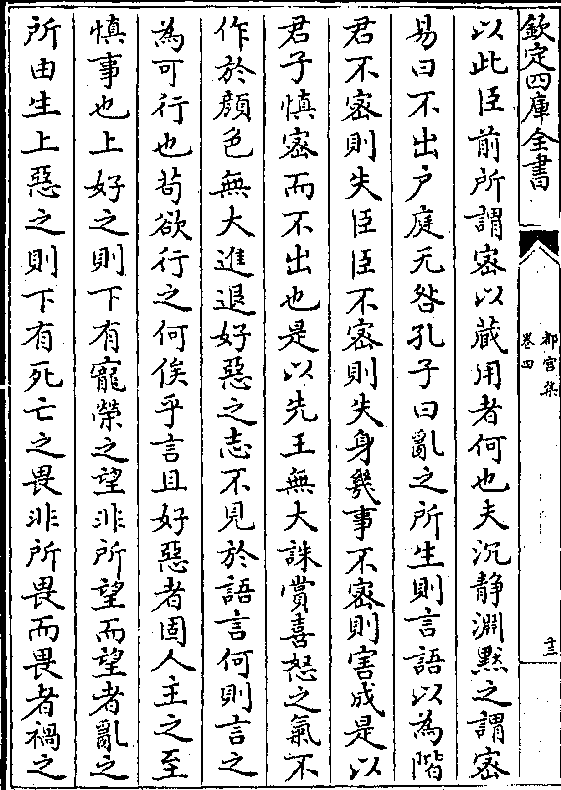 欽定四庫全書
都官集
卷四
十三
以此臣前所謂密以藏用者何也夫沉静淵黙之謂密
易曰不出户庭无咎孔子曰亂之所生則言語以為階
君不密則失臣臣不密則失身幾事不密則害成是以
君子慎密而不出也是以先王無大誅賞喜怒之氣不
作於顔色無大進退好惡之志不見於語言何則言之
為可行也苟欲行之何俟乎言且好惡者固人主之至
慎事也上好之則下有寵榮之望非所望而望者亂之
所由生上惡之則下有死亡之畏非所畏而畏者禍之